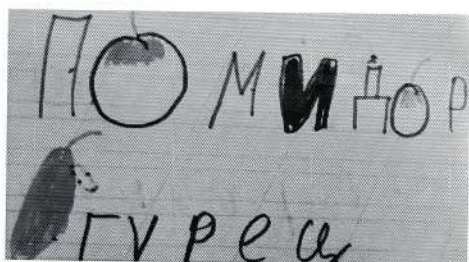 ПОМИДОР
ОГУРЕЦ